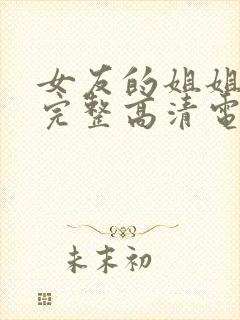 女友的姐姐
完整高清电
未末初